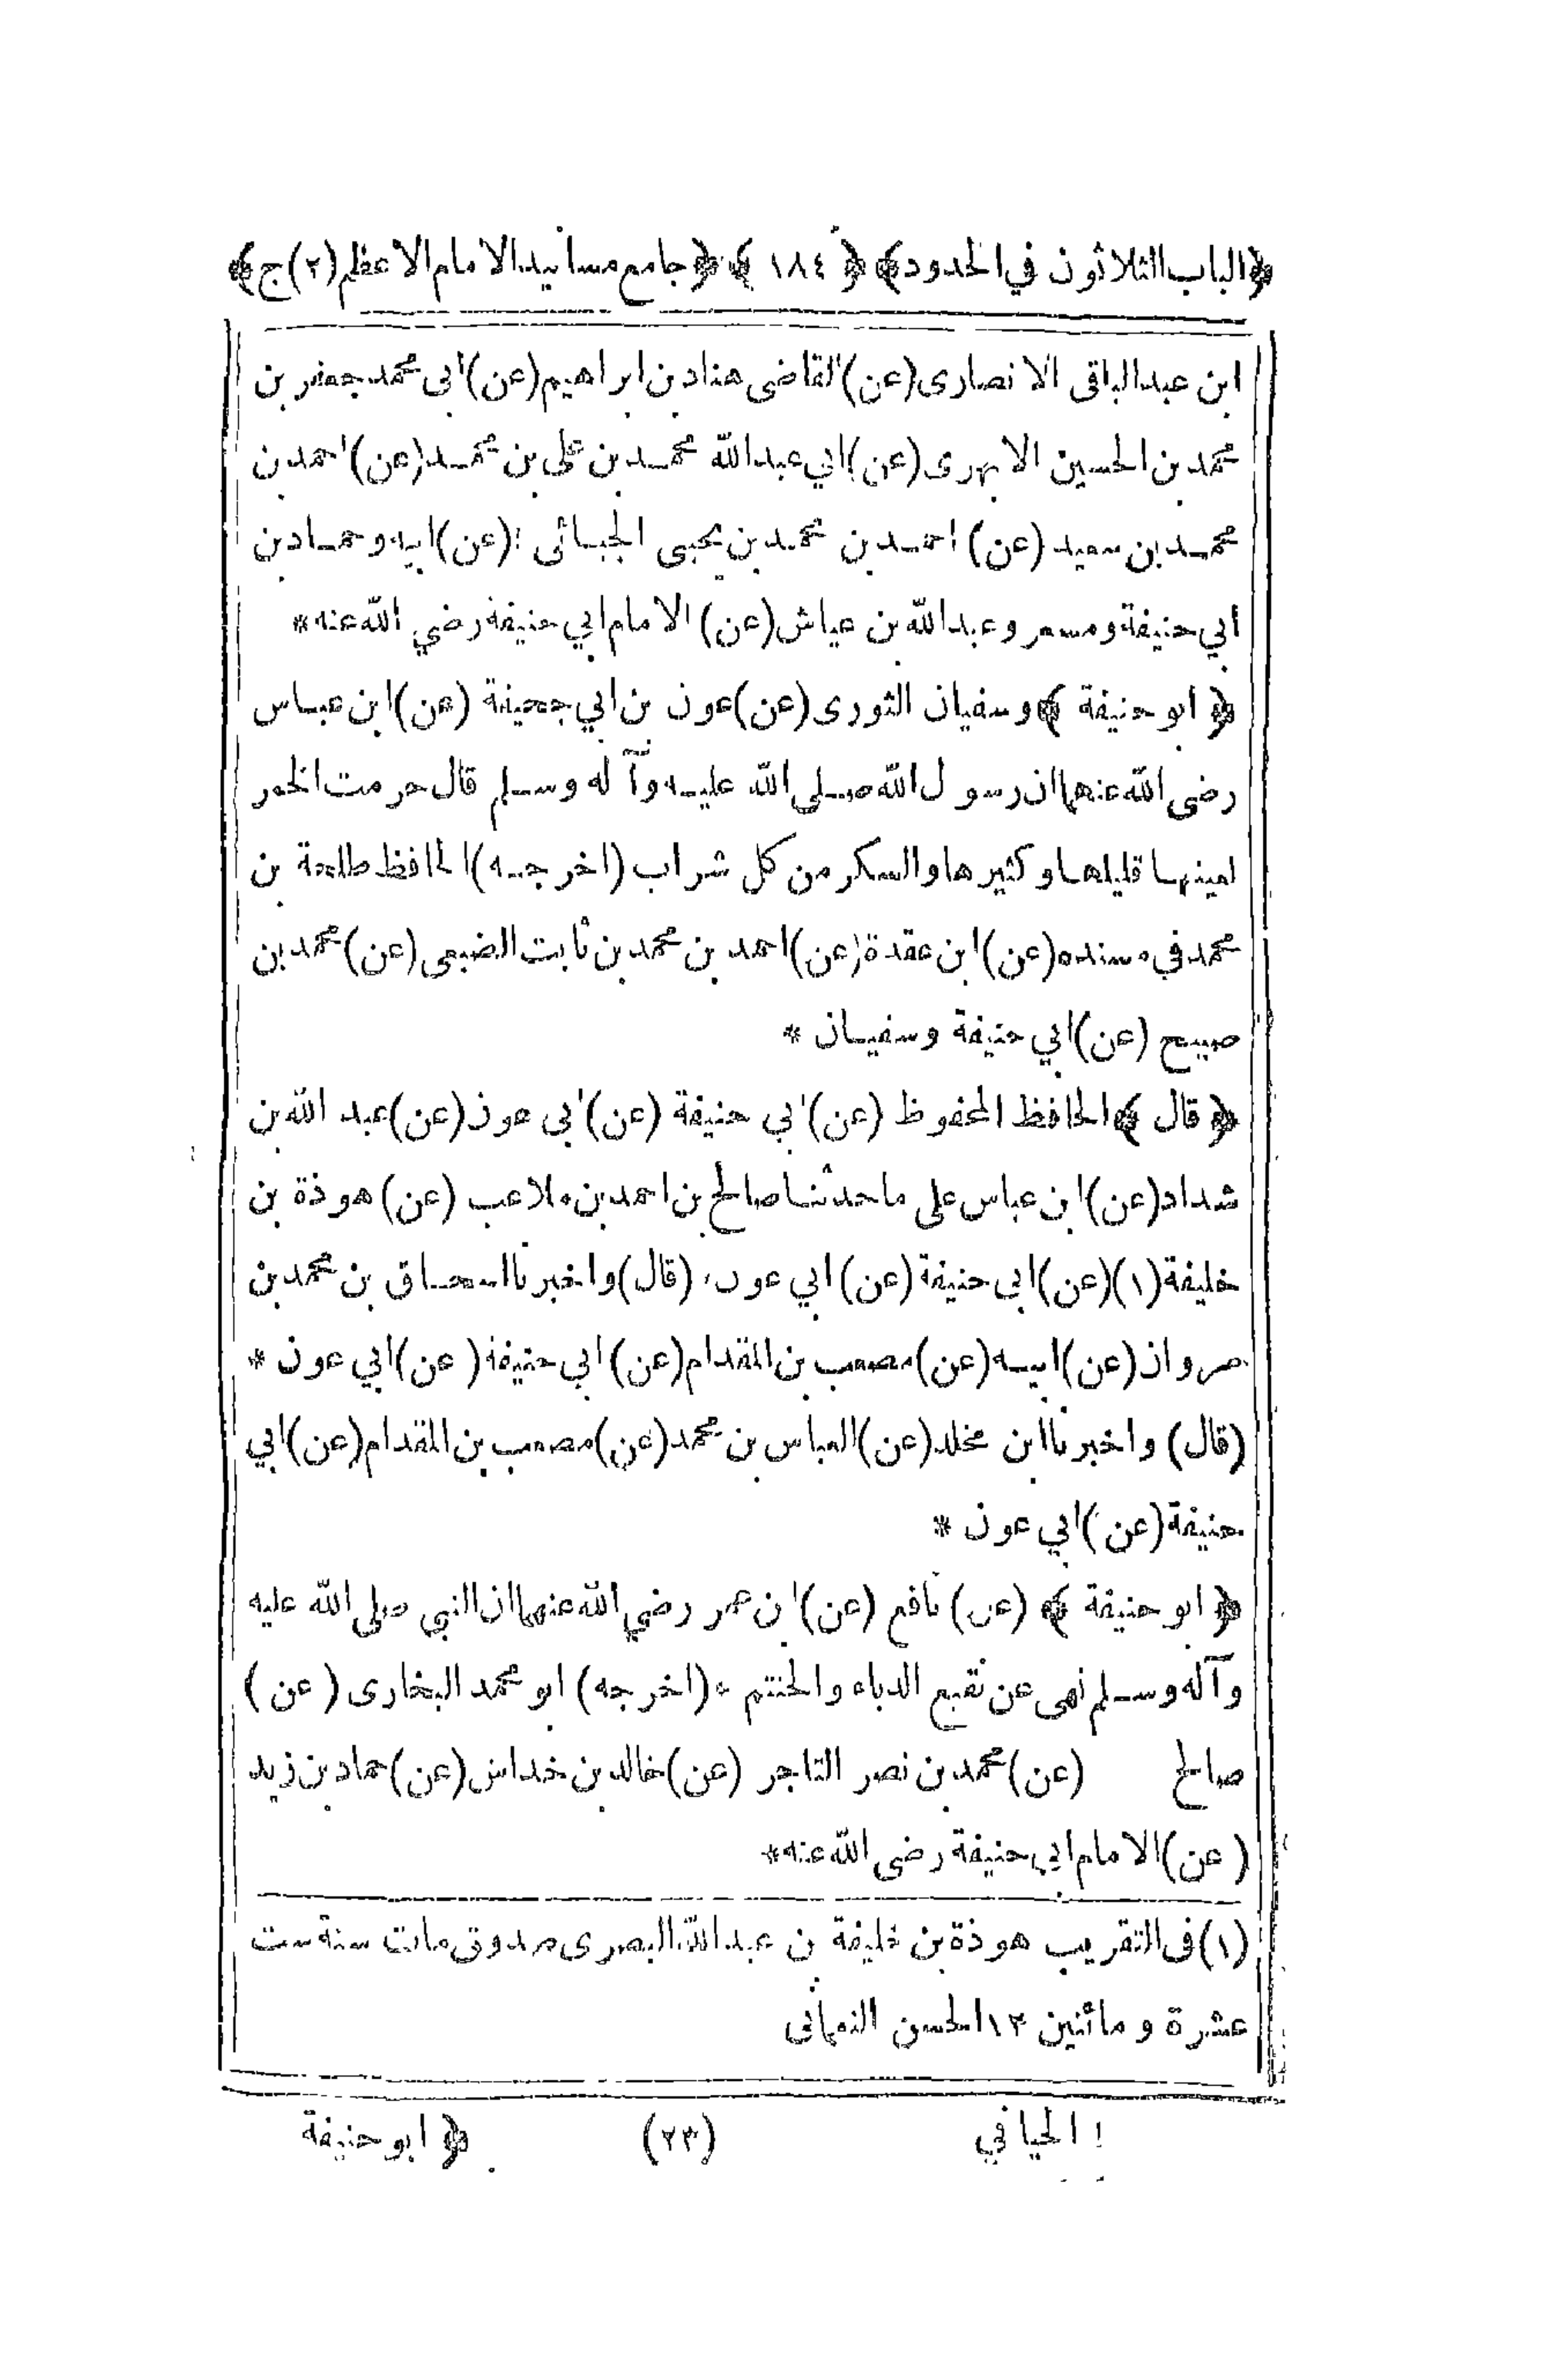 ﴿الباب الثلاثون في الحدود﴾ ﴿ ١٨٤ ﴾ ﴿جامع مسانيد الامام الاعظم (٢) ج﴾
ابن عبد الباقى الانصارى (عن) القاضى هناد بن ابراهيم (عن) ابى محمد جعفر بن
محمد بن الحسين الابهرى (عن) ابي عبد الله محمد بن على بن محمد (عن) احمد بن
محمد بن سعيد (عن) احمد بن محمد بن يحيى الجبائى (عن) ابيه وحماد بن
أبي حنيفة ومسعر وعبد الله بن عياش (عن) الامام ابي حنيفة رضي الله عنه *
﴿ ابو حنيفة ﴾ وسفيان الثورى (عن) عون بن ابي جحيفة (عن) ابن عباس
رضى الله عنهما ان رسول الله صلى الله عليه وآله وسلم قال حرمت الخمر
لعينها قليلها وكثيرها والسكر من كل شراب (اخرجه) الحافظ طلحة بن
محمد في مسنده (عن) ابن عقدة (عن) احمد بن محمد بن ثابت الضبعى (عن) محمد بن
صبيح (عن) ابي حنيفة وسفيان *
﴿ قال ﴾ الحافظ المحفوظ (عن) ابي حنيفة (عن) ابى عون (عن) عبد الله بن
شداد (عن) ابن عباس على ما حدثنا صالح بن احمد بن ملاعب (عن) هوذة بن
خليفة (١) (عن) ابى حنيفة (عن) ابي عون (قال) واخبرنا اسحاق بن محمد بن
مروان (عن) ابيه (عن) مصعب بن المقدام (عن) ابي حنيفة (عن) ابي عون *
(قال) واخبرنا ابن مخلد (عن) العباس بن محمد (عن) مصعب بن المقدام (عن) ابي
حنيفة (عن) ابي عون *
﴿ ابو حنيفة ﴾ (عن) نافع (عن) ابن عمر رضي الله عنهما ان النبي صلى الله عليه
وآله وسلم نهى عن نقيع الدباء والحنتم * (اخرجه) ابو محمد البخارى (عن)
صالح (عن) محمد بن نصر التاجر (عن) خالد بن خداش (عن) حماد بن زيد
(عن) الامام ابي حنيفة رضى الله عنه *
(١) فى التقريب هوذة بن خليفة بن عبد الله البصرى صدوق مات سنة ست
عشرة و مائتين ١٢ الحسن النعمانى
! الحيا في (٢٣) ﴿ ابو حنيفة